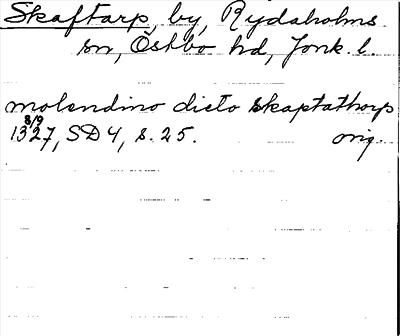 Skaftarp, by, Rydaholms
sn, Östbo hd, Jönk. l.
molendino dicto skaptathorp
8/9
1327, SD 4, s. 25. orig.